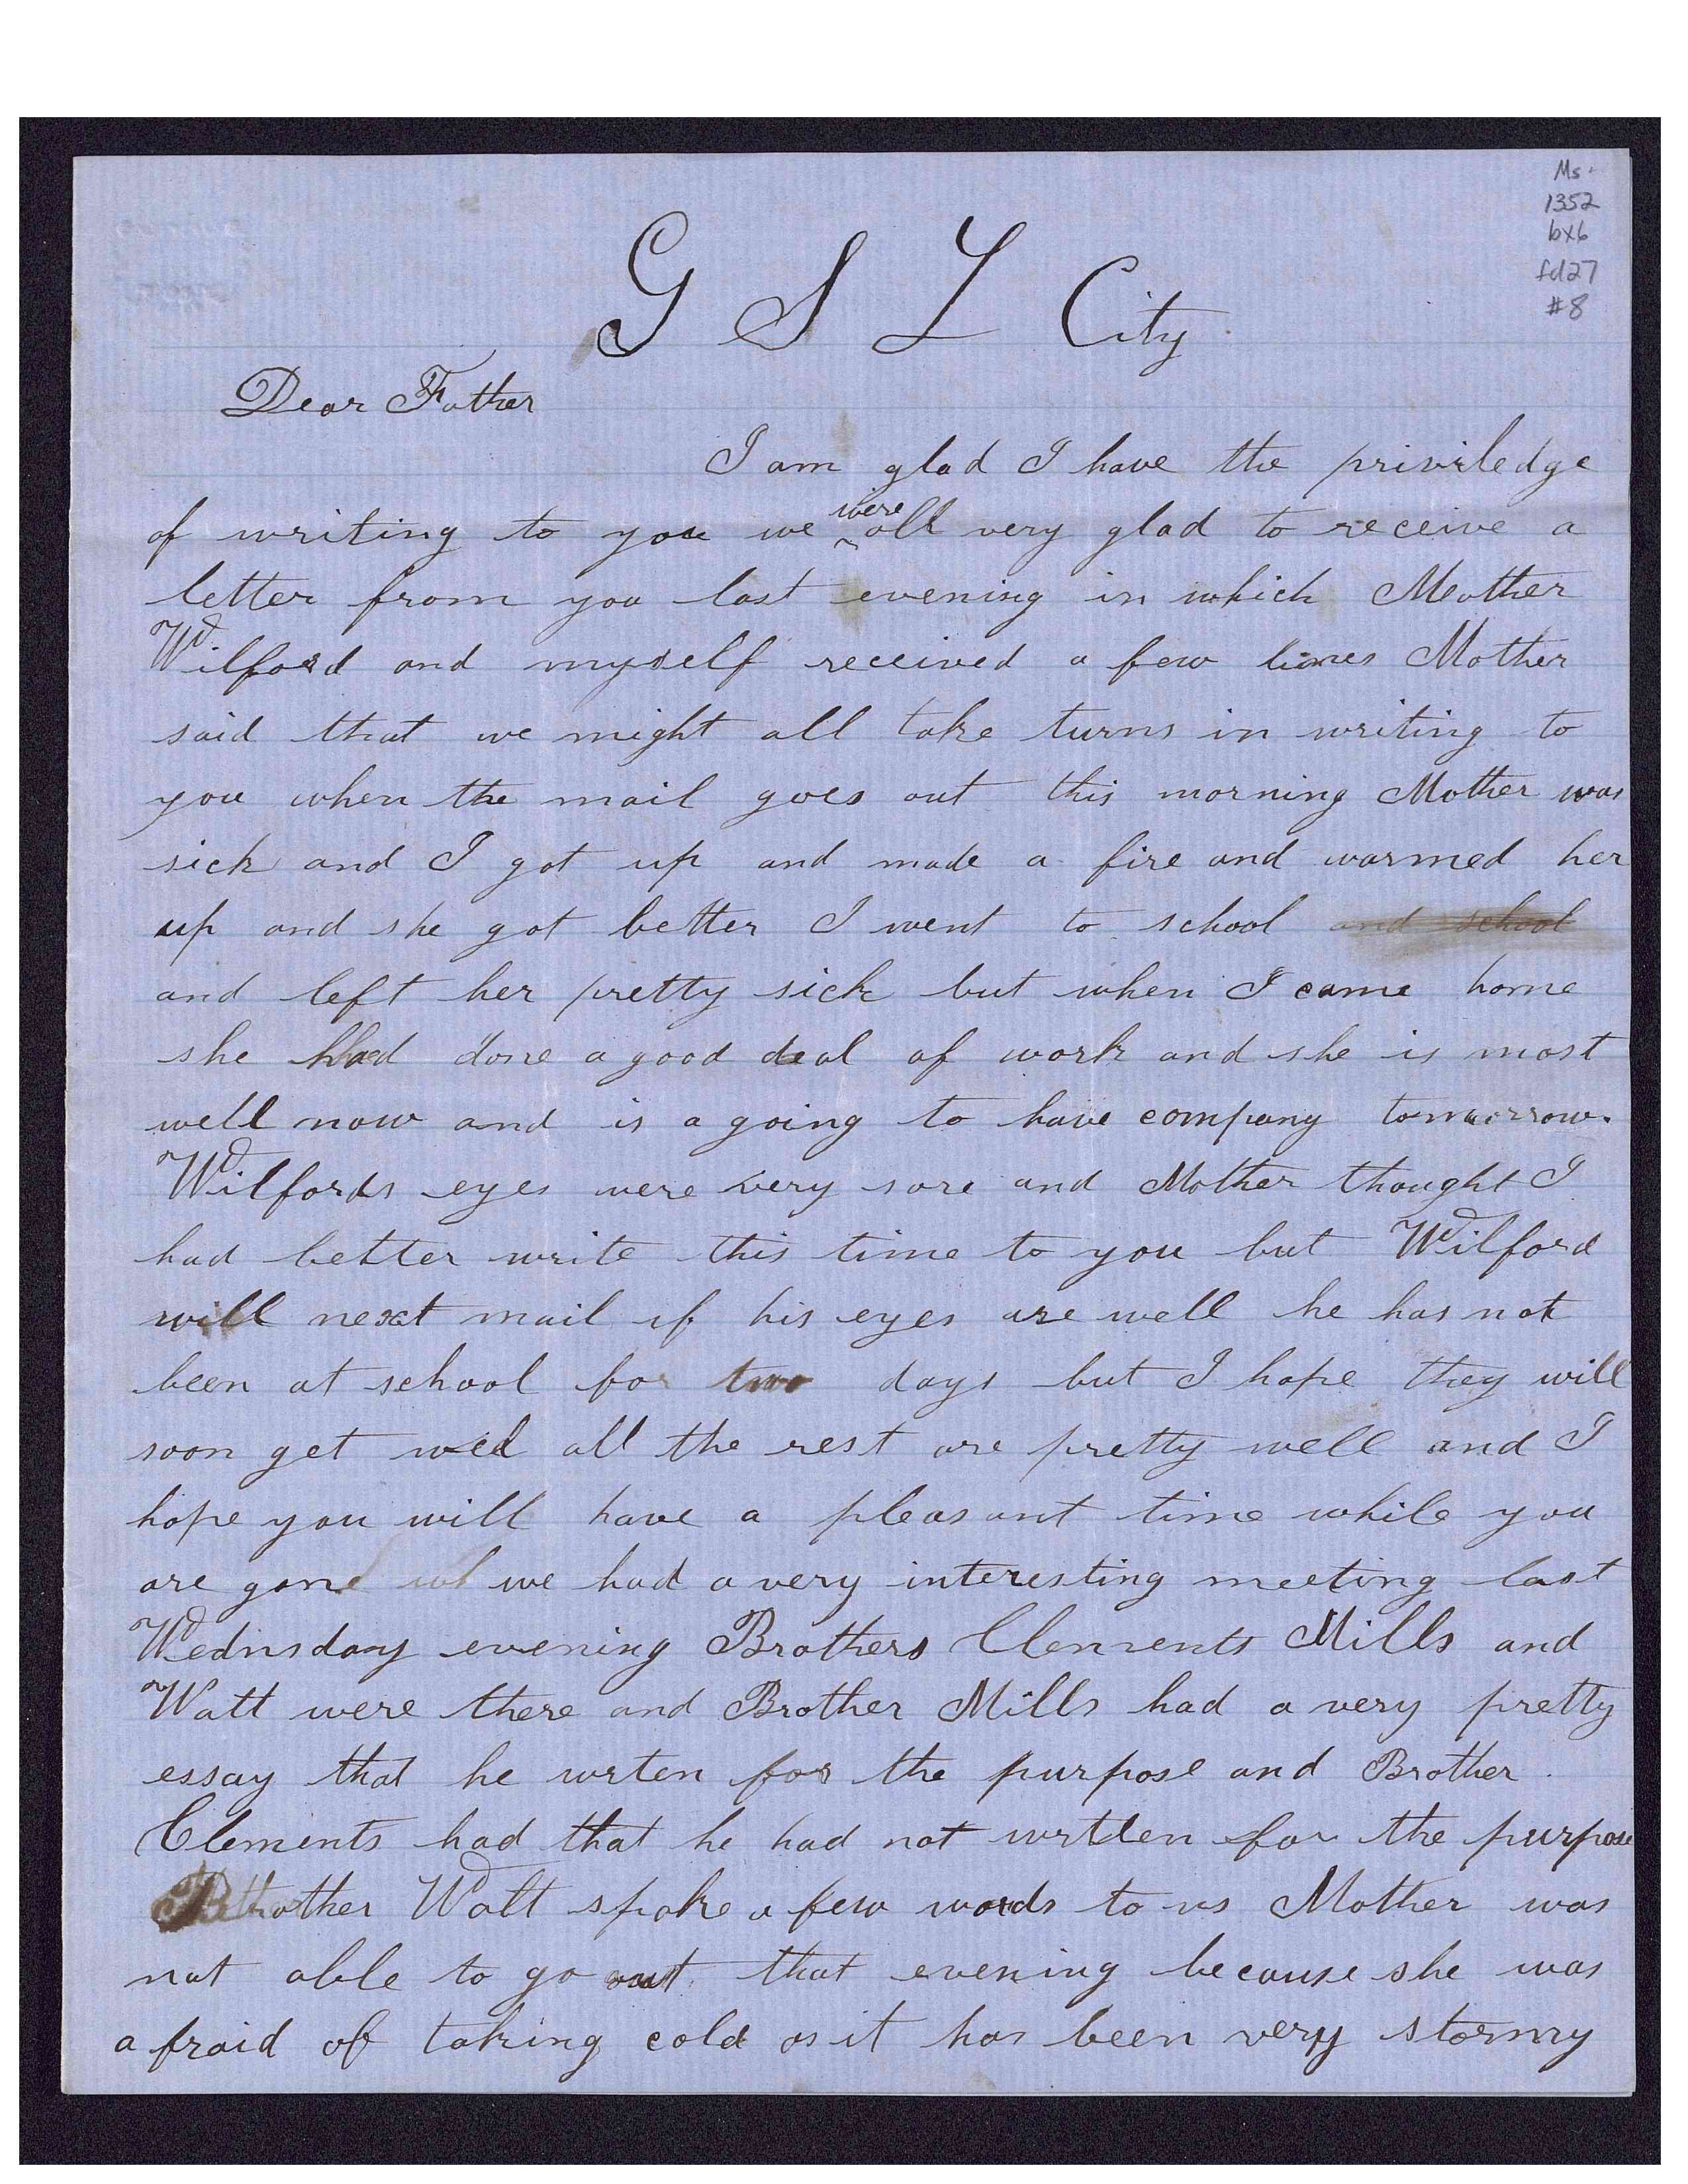 Ms
1352
bx6
fd27
#8
G S L City
Dear Father
I am glad I have the priviledge
of writing to you we were all very glad to receive a
letter from you last evening in which Mother
Wilford and myself received a few lines Mother
said that we might all take turns in writing to
you when the mail goes out this morning Mother was
sick and I got up and made a fire and warmed her
up and she got better I went to school and school
and left her pretty sick but when I came home
she had done a good deal of work and she is most
well now and is a going to have company tomorrow.
Wilfords eyes were very sore and Mother thought I
had better write this time to you but Wilford
will next mail if his eyes are well he has not
been at school for two days but I hope they will
soon get well all the rest are pretty well and I
hope you will have a pleasant time while you
are gone we had a very interesting meeting last
Wednsday evening Brothers Clements Mills and
Watt were there and Brother Mills had a very pretty
essay that he wrten for the purpose and Brother
Clements had that he had not wrtten for the purpose
Brother Watt spoke a few words to us Mother was
not able to go out that evening because she was
afraid of taking cold as it has been very stormy